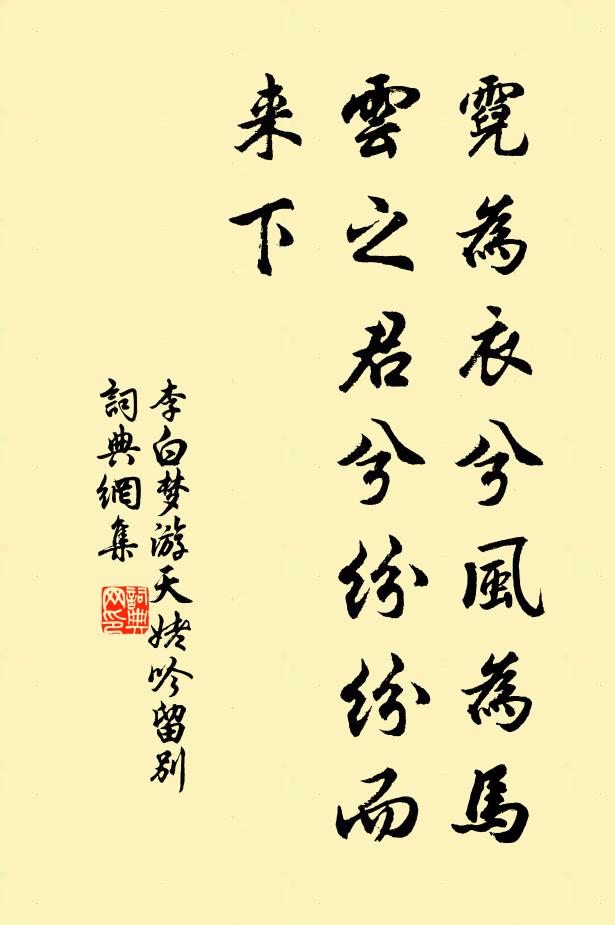 霓為衣兮風為馬
雲之君兮紛紛而
来下
李白梦游天姥吟留别
詞典網集
詞典网印